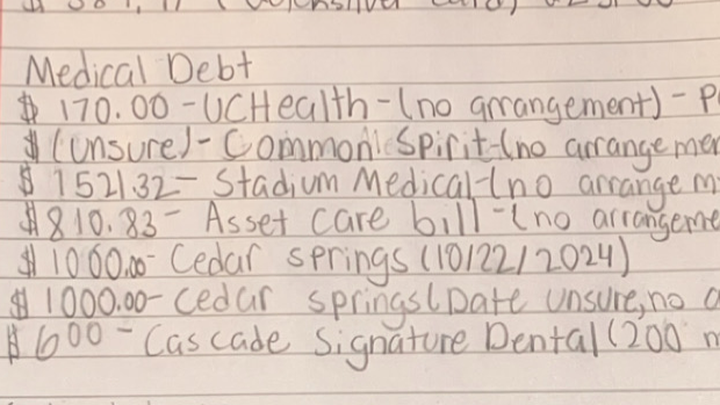 Medical Debt
$ 170.00 - UCHealth - (no arrangement) - P
$ (unsure) - Common Spirit - (no arrangemen
$ 1521.32 - Stadium Medical - (no arrangem
$810.83 - Asset care bill - (no arrangeme
$ 1000.00 - Cedar springs (10/22/2024)
$ 1000.00 - cedar springs (Date unsure, no a
$ 600 - Cascade Signature Dental (200 m